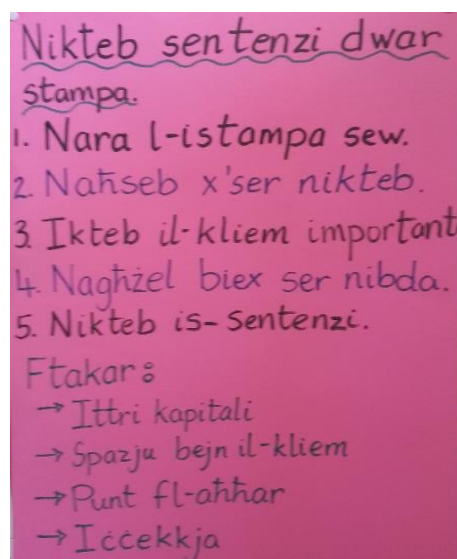 Nikteb sentenzi dwar
stampa.
1. Nara l-istampa sew.
2. Naħseb x'ser nikteb.
3. Ikteb il-kliem important
4. Nagħżel biex ser nibda.
5. Nikteb is-sentenzi.
Ftakar:
→ Ittri kapitali
→ Spazju bejn il-kliem
→ Punt fl-aħħar
→ Iċċekkja